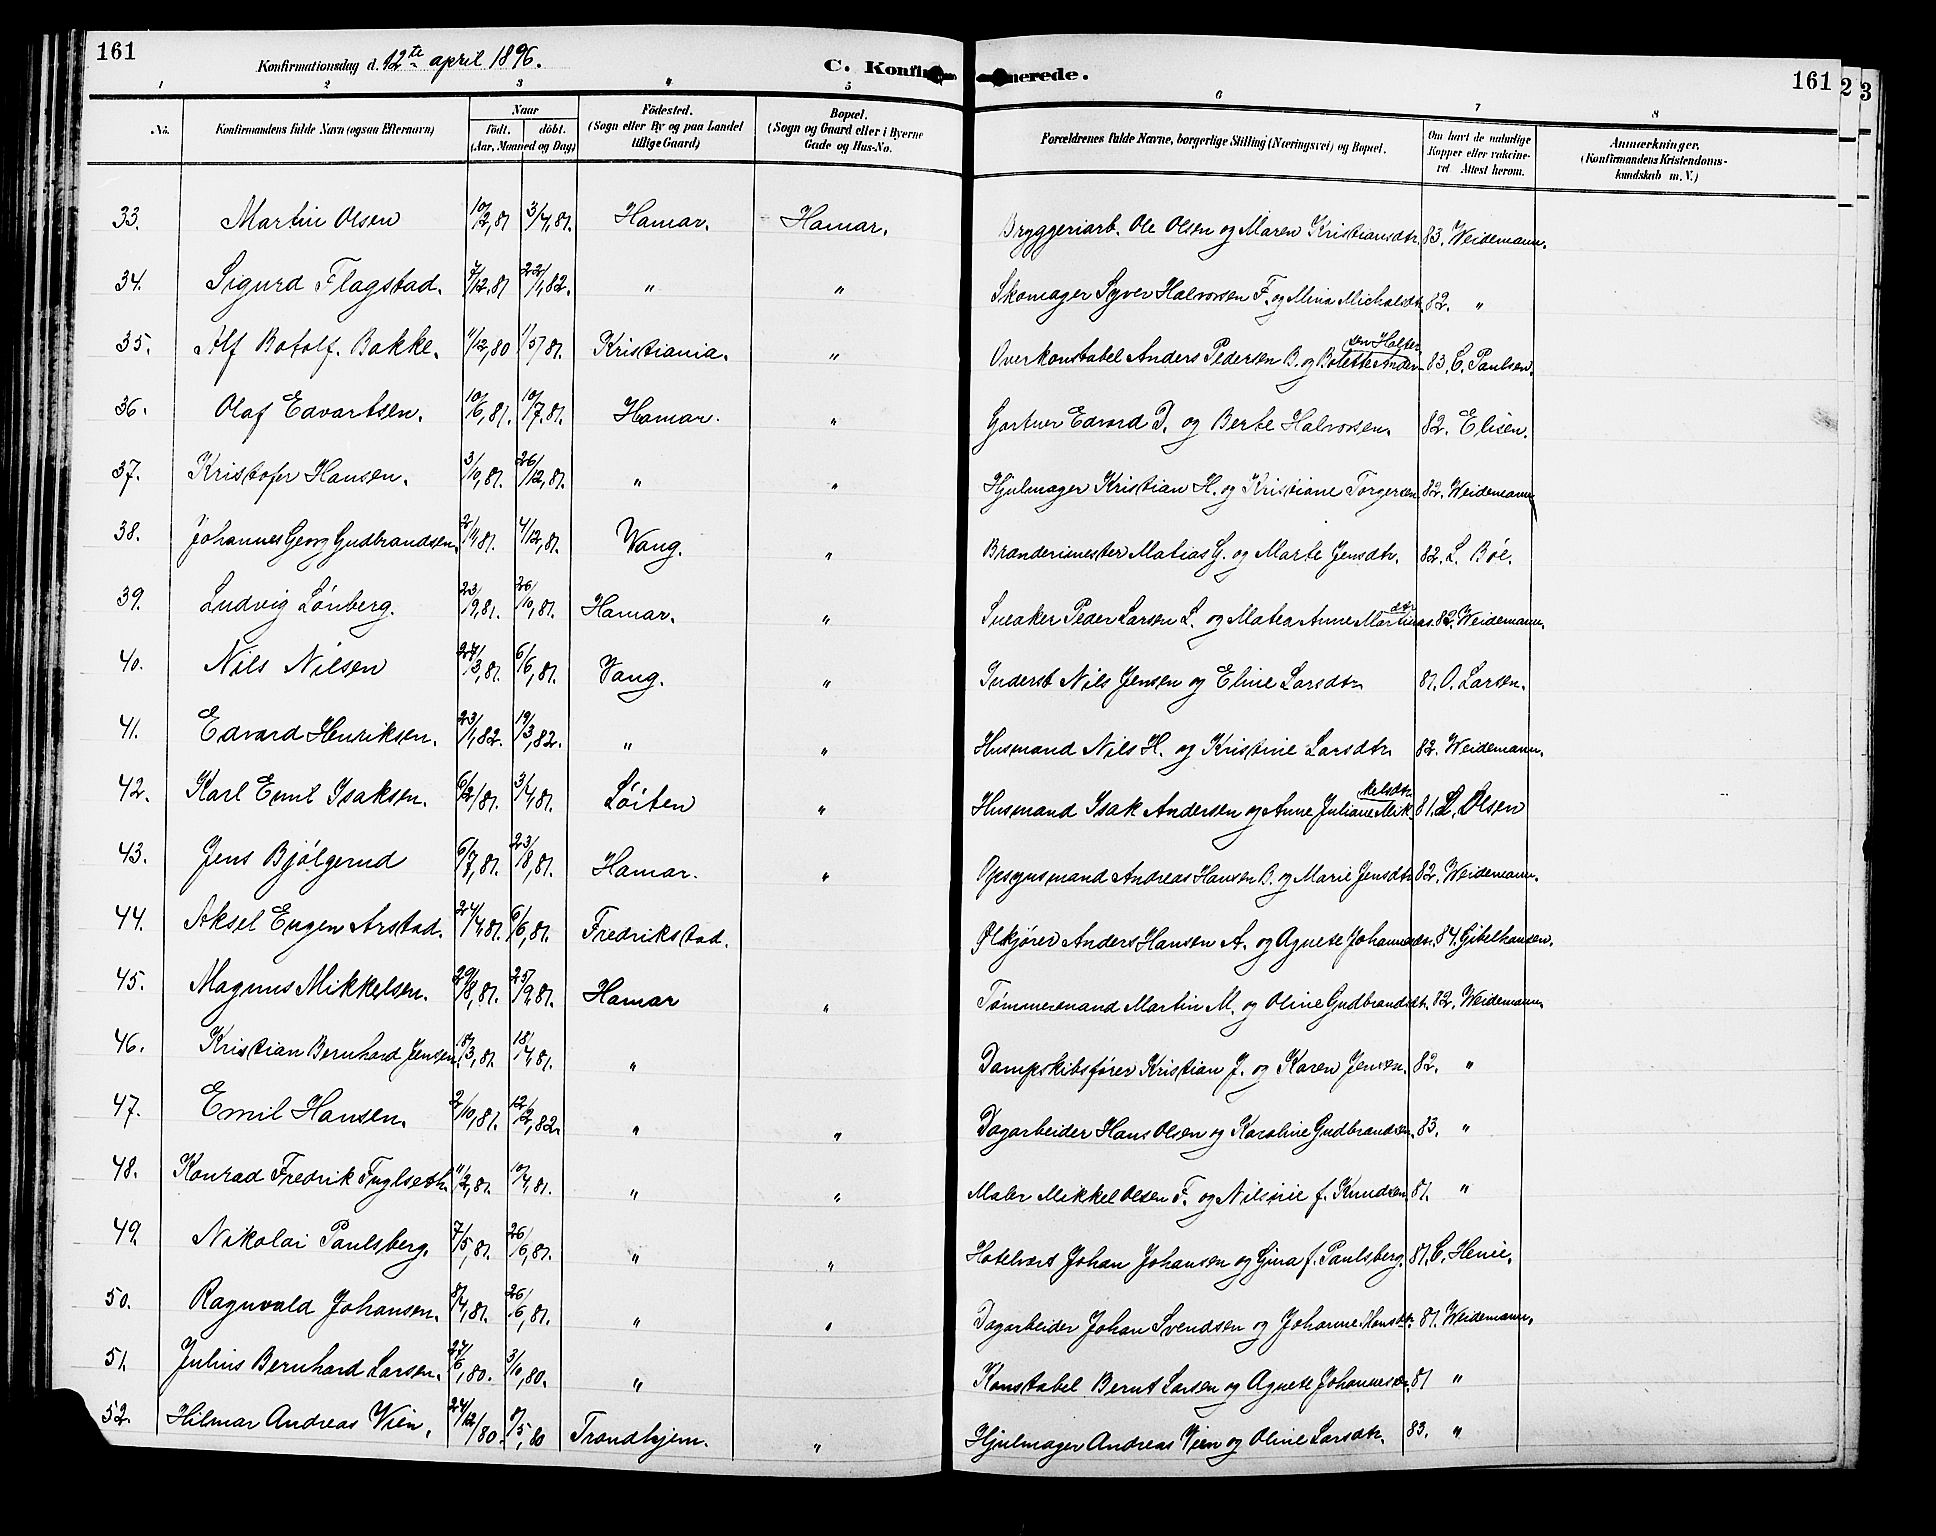 161
Konfirmationsdag d. 12te april 1896.
C. Konfir
merede.
161
2
3
1 2 3 4 5 6 7 8
No.
Konfirmandens fulde Navn (ogsaa Efternavn)
Naar
födt. döbt.
(Aar, Maaned og Dag)
Födested.
(Sogn eller By og paa Landet
tillige Gaard)
Bopæl.
(Sogn og Gaard eller i Byerne
Gade og Hus-No.
Forældrenes fulde Navne, borgerlige Stilling (Næringsvei) og Bopæl.
Om havt de naturlige
Kopper eller vakcine-
ret Attest herom.
Anmærkninger.
(Konfirmandens Kristendoms-
kundskab m. V.)
33. Martin Olsen 10/2,81 3/4,81. Hamar. Hamar. Bryggeriarb. Ole Olsen og Maren Kristiansdtr. 83. Weidemann.
34. Sigurd Flagstad. 7/12,81 22/1,82. " " Skomager Syver Halvorsen F. og Mina Michalsdtr. 82. "
35. Alf Botolf. Bakke. 11/12,80 1/5,81. Kristiania. " Overkonstabel Anders Pedersen B. og Bolette Andersen Halter 83. C. Paulsen.
36. Olaf Edvartsen. 10/6,81. 10/7,81. Hamar. " Gartner Edvard D. og Berte Halvorsen. 82. Elisen.
37. Kristofer Hansen. 3/10,81. 26/12,81. " " Hjulmager Kristian H. og Kristiane Torgersen 82. Weidemann
38. Johannes Georg Gudbrandsen. 2/4,81. 4/12,81. Vang. " Brænderimester Matias G. og Marte Jensdtr. 82. L. Bøe.
39. Ludvig Lönberg. 23/9,81. 26/10,81. Hamar. " Snekker Peder Larsen L. og Matea Anne Martinasdtr 82. Weidemann.
40. Nils Nilsen 24/3,81. 6/6,81. Vang. " Inderst Nils Jensen og Eline Larsdtr 81. O. Larsen.
41. Edvard Henriksen. 23/1,82. 19/3,82. " " Husmand Nils H. og Kristine Larsdtr. 82. Weidemann.
42. Karl Emil Isaksen. 6/2/81. 3/4,81. Löiten " Husmand Isak Andersen og Anne Juliane Mikkelsdtr 81. L. Olsen
43. Jens Bjölgerud 6/7,81. 23/8,81. Hamar. " Opsynsmand Andreas Hansen B. og Marie Jensdtr 82. Weidemann.
44. Aksel Eugen Arstad. 24/4,81. 6/6,81. Fredrikstad. " Ølkjører Anders Hansen A. og Agnete Johannesdtr. 84. Gibelhausen.
45. Magnus Mikkelsen. 29/8,81. 25/9,81. Hamar " Tømmermand Martin M. og Oline Gudbrandsdtr. 82. Weidemann.
46. Kristian Bernhard Jensen. 18/3,81. 18/4,81. " Dampskibsfører Kristian J. og Karen Jensen. 82. "
47. Emil Hansen. 2/10,81. 12/2,82. " " Dagarbeider Hans Olsen og Karoline Gudbrandsen. 83. "
48. Konrad Fredrik Fuglseth. 11/2,81. 10/4,81. " " Maler Mikkel Olsen F. og Nilsine f. Knudsen 81. "
49. Nikolai Paulsberg. 7/5,81. 26/6,81. " " Hotelvært Johan Johansen og Gina f. Paulsberg. 81. C. Henie.
50. Ragnvald Johansen. 8/4,81. 26/6,81. " " Dagarbeider Johan Svendsen og Johanne Hansdtr. 81. Weidemann.
51. Julius Bernhard Larsen. 27/6,80. 3/10,80. " Konstabel Bernt Larsen og Agnete Johannesdtr. 81 "
52. Hilmar Andreas Vien. 24/12/80. 8/5,80 Trondhjem. " Hjulmager Andreas Vien og Oline Larsdtr. 83. "